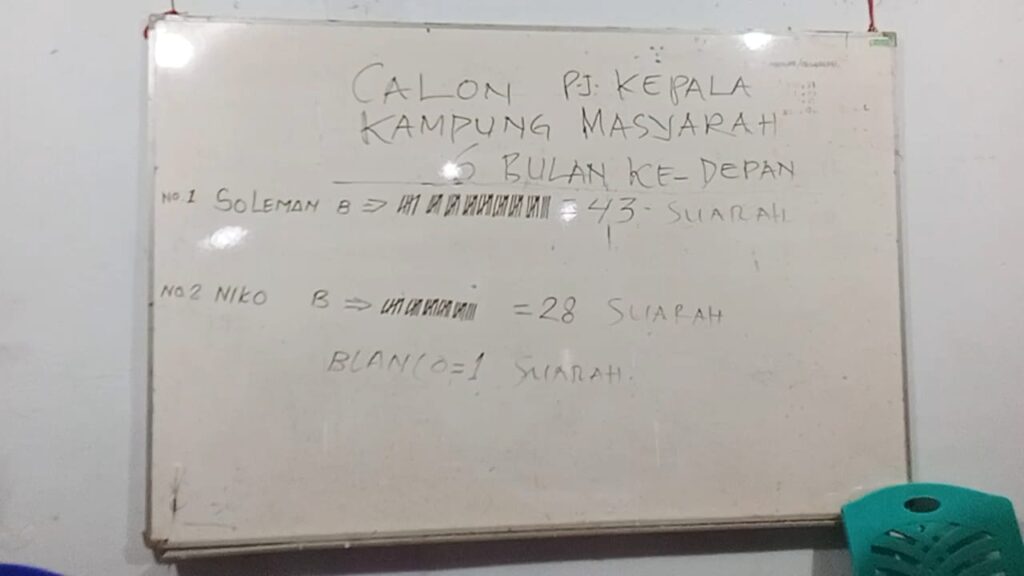 CALON PJ. KEPALA
KAMPUNG MASYARAH
6 BULAN KE-DEPAN
NO.1 SOLEMAN B ⇒ = 43 - SUARAH
NO.2 NIKO B ⇒ = 28 SUARAH
BLANCO = 1 SUARAH.